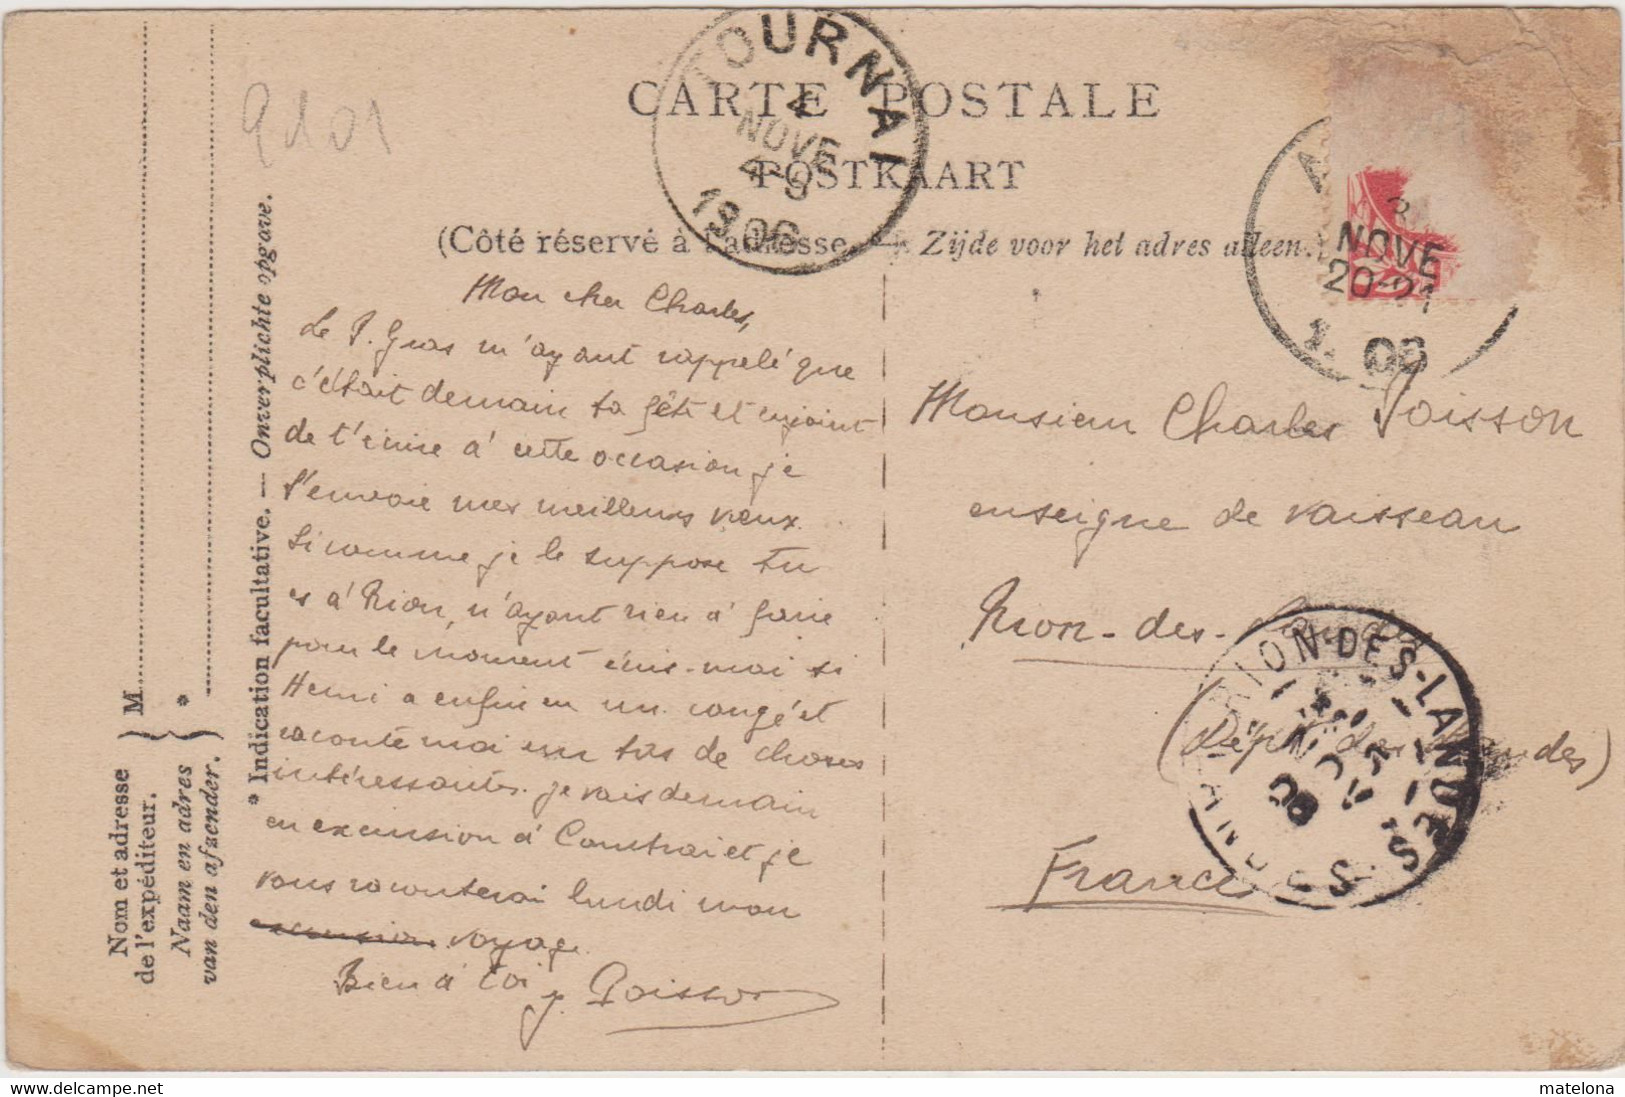 CARTE POSTALE
POSTKAART
(Côté réservé à l'adresse. — Zijde voor het adres alleen.)
TOURNAI
4
NOVE
1906
3
NOVE
20-21
1. 06
9101
Nom et adresse
de l'expéditeur.
Naam en adres
van den afzender.
M
*
* Indication facultative. — Onverplichte opgave.
Mon cher Charles,
Le P. Gras m'ayant rappelé que
c'était demain ta fête et enjoint
de t'écrire à cette occasion je
t'envoie mes meilleurs vœux.
Si comme je le suppose tu
es à Rion, n'ayant rien à faire
pour le moment écris-moi si
Henri a enfin eu un congé et
raconte moi un tas de choses
intéressantes. je vais demain
en excursion à Courtrai et je
vous raconterai lundi mon
excursion voyage.
Bien à toi
J. Poisson
Monsieur Charles Poisson
enseigne de vaisseau
Rion-des-Landes
(Dépt des Landes)
France
RION-DES-LANDES
LANDES
https://www.delcampe.net
matelona